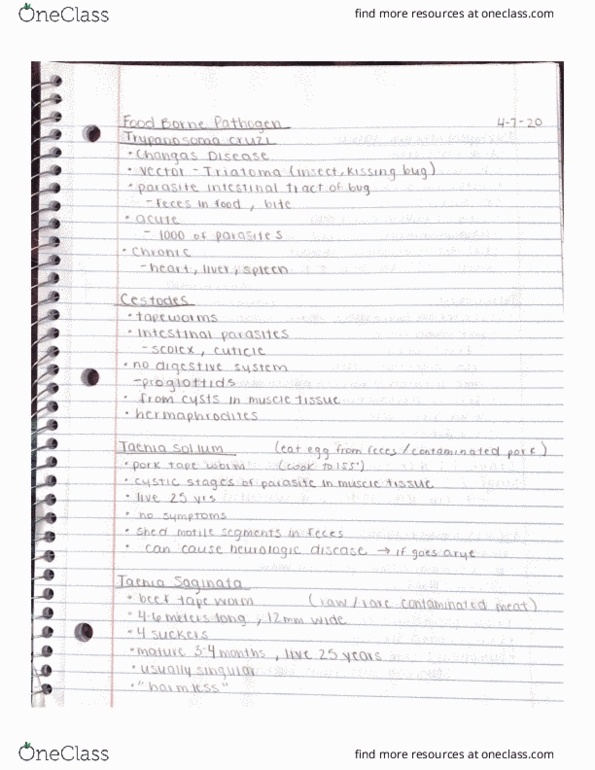 OneClass
find more resources at oneclass.com
Food Borne Pathogen 4-7-20
Trypanosoma cruzi
• Changas Disease
• vector - Triatoma (insect, kissing bug)
• parasite intestinal tract of bug
- feces in food, bite
• acute
- 1000 of parasites
• chronic
- heart, liver, spleen
Cestodes
• tapeworms
• intestinal parasites
- scolex, cuticle
• no digestive system
- proglottids
• from cysts in muscle tissue
• hermaphrodites
Taenia Solium (eat egg from feces/contaminated pork)
• pork tape worm (cook to 155°)
• cystic stages of parasite in muscle tissue
• live 25 yrs
• no symptoms
• shed motile segments in feces
• can cause neurologic disease → if goes
Taenia Saginata
• beef tape worm (raw/rare contaminated meat)
• 4-6 meters long, 12mm wide
• 4 suckers
• mature 3-4 months, live 25 years
• usually singular
• "harmless"
OneClass
find more resources at oneclass.com